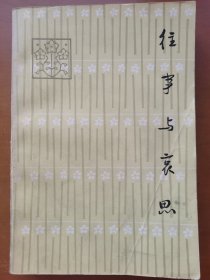 往事与哀思